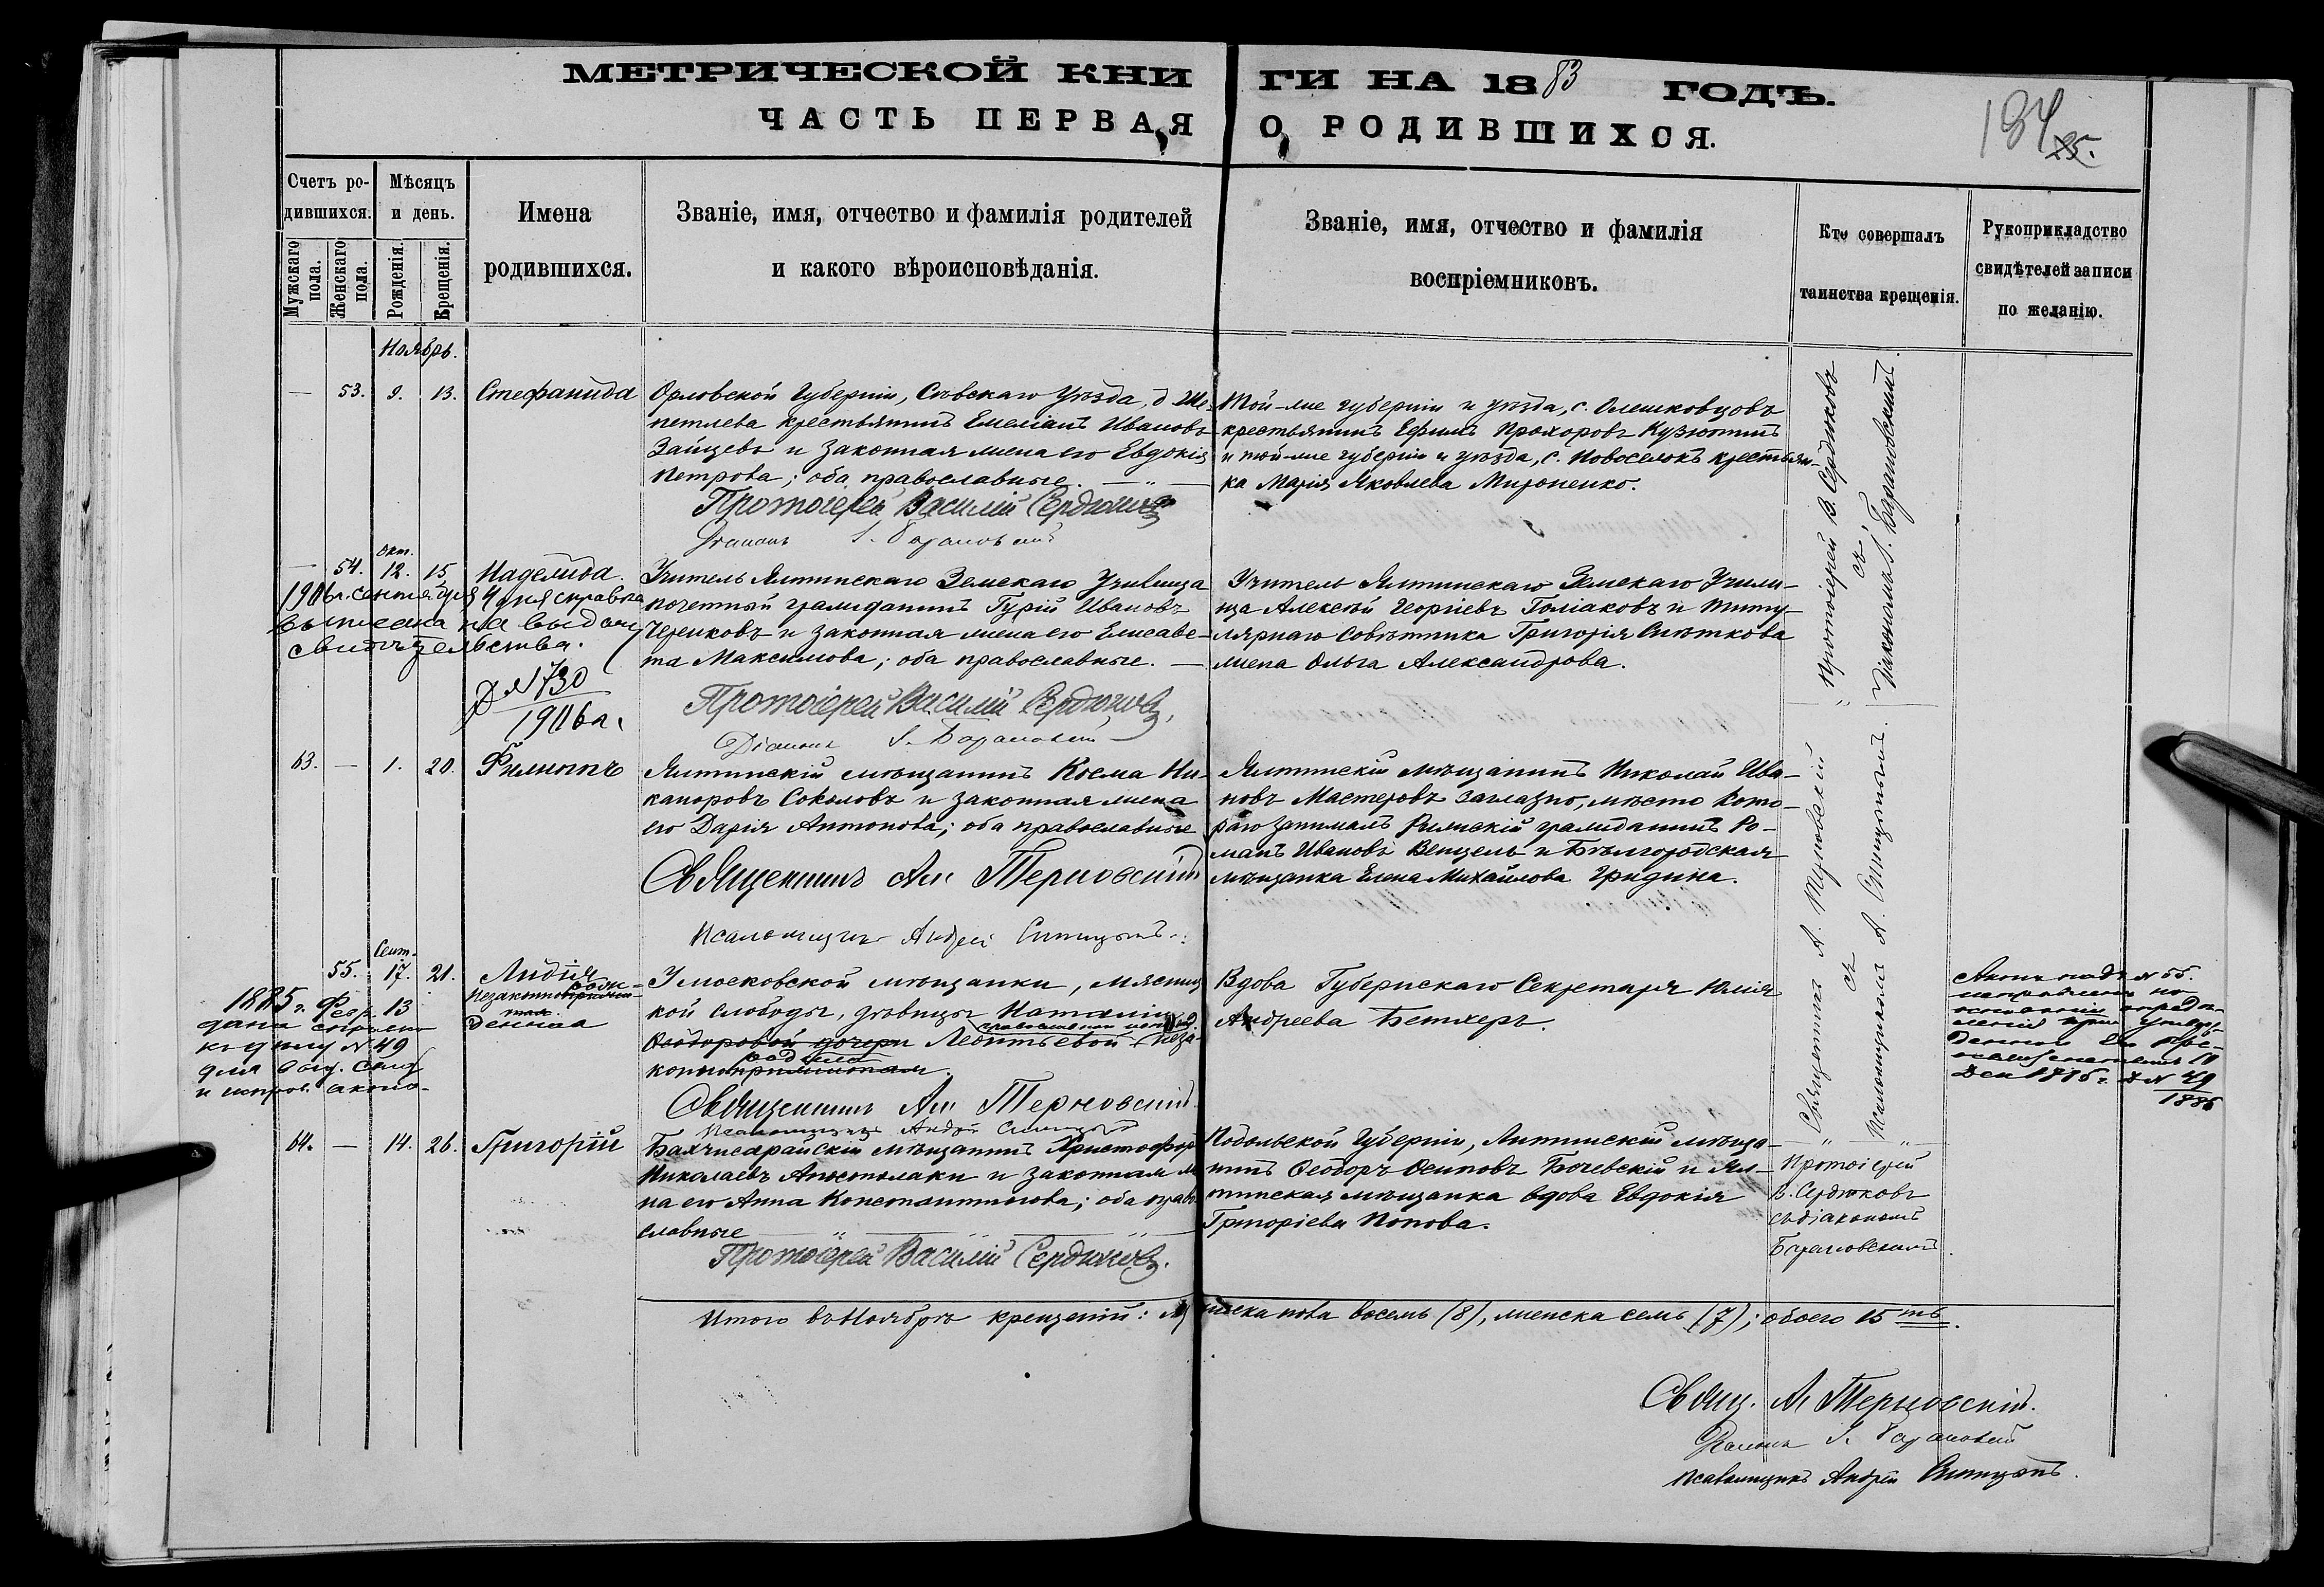 МЕТРИЧЕСКОЙ КНИ ГИ НА 1883 ГОДЪ.
ЧАСТЬ ПЕРВАЯ О РОДИВШИХСЯ.
134
Счетъ ро-
дившихся.
Мужскаго пола.
Женскаго пола.
Мѣсяцъ
и день.
Рожденія.
Крещенія.
Имена
родившихся.
Званіе, имя, отчество и фамилія родителей
и какого вѣроисповѣданія.
Званіе, имя, отчество и фамилія
воспріемниковъ.
Кто совершалъ
таинства крещенія.
Рукоприкладство
свидѣтелей записи
по желанію.
Ноябрь.
— 53. 9. 13. Стефанида
Орловской Губерніи, Сѣвскаго Уѣзда, д Ше-
петлева крестьянинъ Емеліанъ Ивановъ
Зайцевъ и законная жена его Евдокія
Петрова; оба православные.
Протоіерей Василій Сердюковъ
Діаконъ І. Барановскій
Той-же губерніи и уѣзда, с. Олешковцовъ
крестьянинъ Ефимъ Прохоровъ Кузютинъ
и той-же губерніи и уѣзда, с. Новоселокъ крестьян-
ка Марія Яковлева Мироненко.
Протоіерей В. Сердюковъ
съ
Діакономъ І. Барановскимъ.
Окт.
— 54. 12. 15
1906 г. сентября 4 дня справка
выписана на выдачу
свидѣтельства.
Д №730
1906 г.
Учитель Ялтинскаго Земскаго Училища
почетный гражданинъ Гурій Ивановъ
Череиковъ и законная жена его Елисаве-
та Максимова; оба православные.
Протоіерей Василій Сердюковъ,
Діаконъ І. Барановскій
Учитель Ялтинскаго Земскаго Учили-
ща Алексѣй Георгіевъ Голіаковъ и Титу-
лярнаго Совѣтника Григорія Снѣткова
жена Ольга Александрова.
63. — 1. 20. Филиппъ
Ялтинскій мѣщанинъ Косма Ни-
каноровъ Соколовъ и законная жена
его Дарія Антонова; оба православные
Священникъ Ал. Терновскій
Псаломщикъ Андрей Синицынъ
Ялтинскій мѣщанинъ Николай Ива-
новъ Мастеровъ заглазно, мѣсто кото-
раго занималъ Римскій гражданинъ Ро-
манъ Ивановъ Венцель и Бѣлгородская
мѣщанка Елена Михайлова Гридина.
Священникъ А. Терновскій
съ
Псаломщикомъ А. Синицынымъ.
Сент.
55. 17. 21. Лидія
1885 г. Февр. 13
дана
къ дѣлу № 49
для выд. Свид
и испр. акта
денная
У московской мѣщанки, мясниц
кой слободы, дѣвицы Наталіи
Ѳеодоровой дочери Леонтьевой
Священникъ Ал. Терновскій.
Псаломщикъ Андрей Синицынъ
Вдова Губернскаго Секретаря Юлія
Андреева Бетхеръ.
Актъ подъ № 55.
исправленъ по
Дек 1885 г. Д № 49
1885
64. — 14. 26. Григорій
Бахчисарайскій мѣщанинъ Христофоръ
Николаевъ Апостолаки и законная же
на его Анна Константинова; оба право
славные
Протоіерей Василій Сердюковъ.
Подольской Губерніи, Литинскій мѣща-
нинъ Ѳеодоръ Осиповъ Бочевскій и Ял-
тинская мѣщанка вдова Евдокія
Григоріева Попова.
Протоіерей
В. Сердюковъ
съ діакономъ
Барановскимъ.
Итого въ Ноябрѣ крещеній: мужска пола восемь (8), женска семь (7); обоего 15ть.
Свящ. Ал Терновскій.
Діаконъ І. Барановскій
Псаломщикъ Андрей Синицынъ.